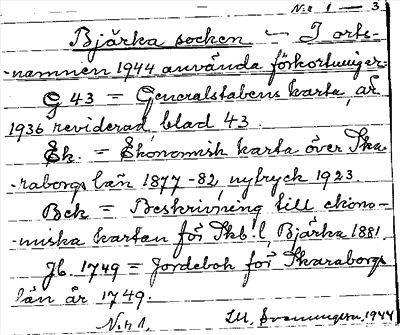 N:r 1 — 3.
Bjärka socken — I orts-
-namnen 1944 använda förkortningar.
G 43 = Generalstabens karta, år
1936 reviderad, blad 43.
Ek. = Ekonomisk karta över Ska-
-raborgs län 1877-82, nytryck 1923.
Bek = Beskrivning till ekono-
-miska kartan för Skb:l, Bjärka 1881.
Jb. 1749 = Jordebok för Skaraborgs
län år 1749.
N:r 1. 1944